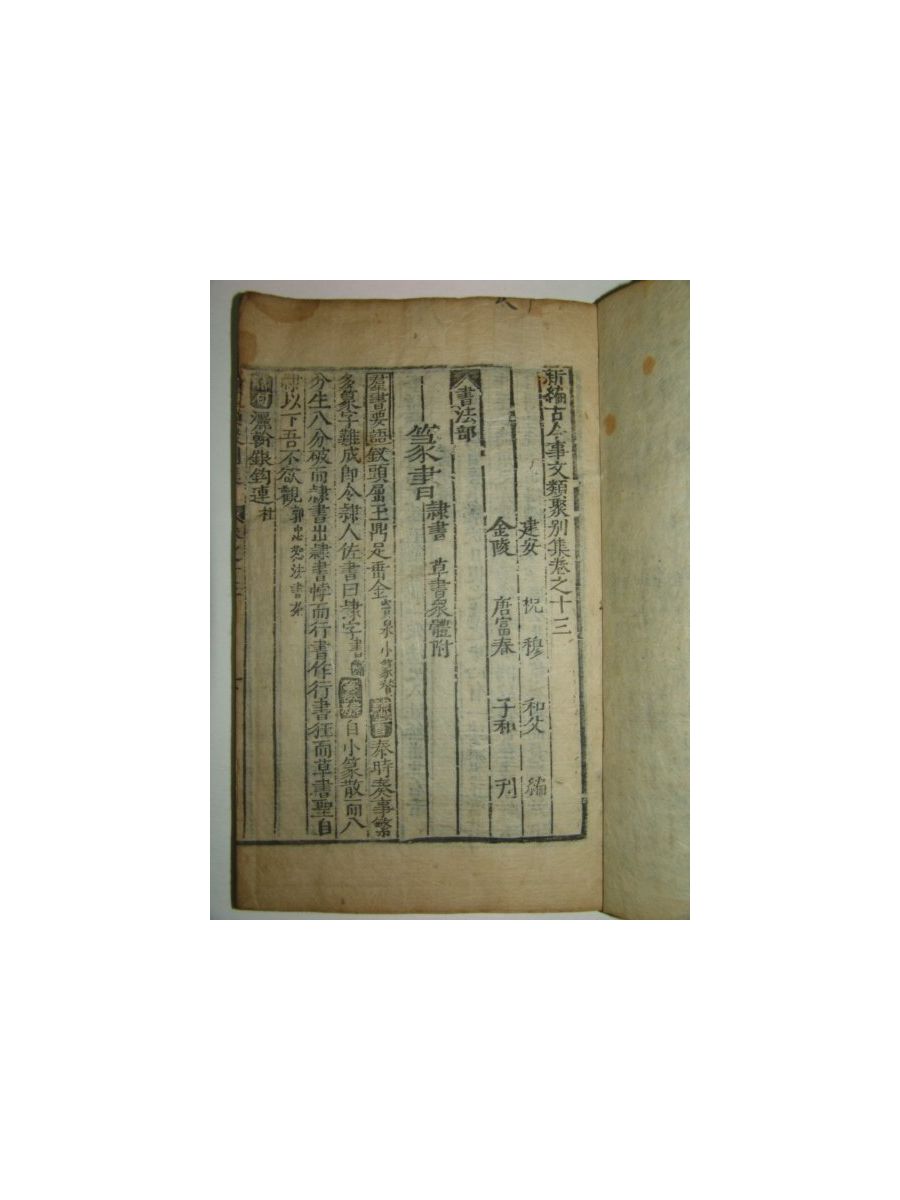 新編古今事文類聚別集卷之十三
建安 祝 穆 和父 編
金陵 唐富春 子和 刊
書法部
篆書 隸書 草書衆體附
羣書要語釵頭屈玉鼎足垂金 小篆贊 秦時奏事繁
多篆字難成即令隸人佐書曰隸字 自小篆散而八
分生八分破而隸書出隸書悖而行書作行書狂而草書聖自
隸以下吾不欲觀 郭忠恕法書
灑翰銀鈎連 杜